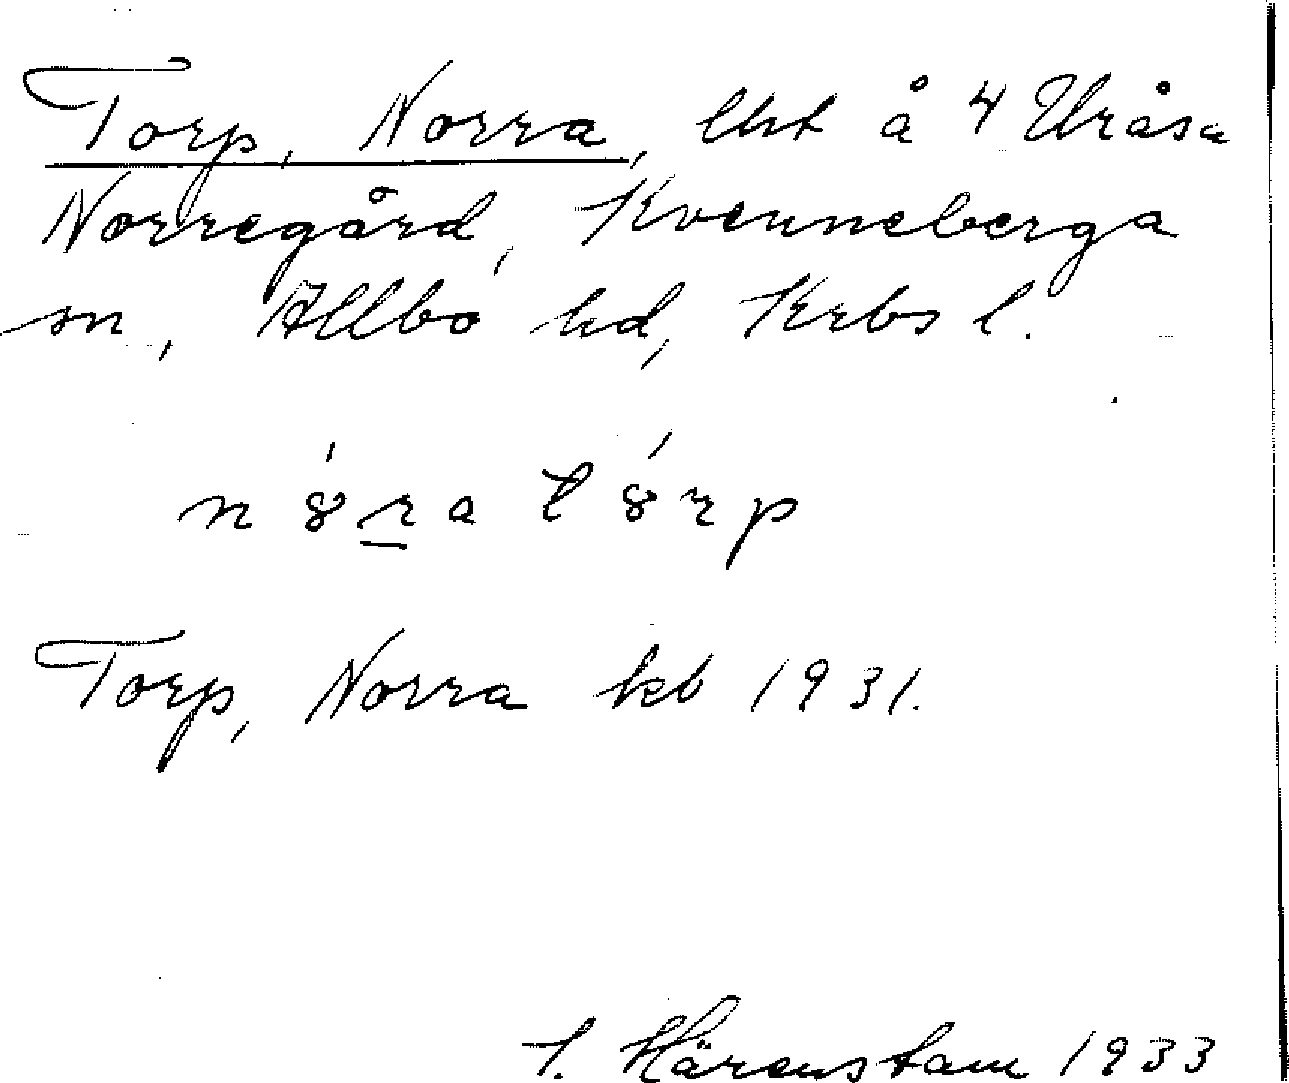 Torp, Norra, lht å 4 Uråsa
Norregård, Kvenneberga
sn, Allbo hd, Krbs l.
n8́ra t8́rp
Torp, Norra kb 1931.
Härenstam 1933